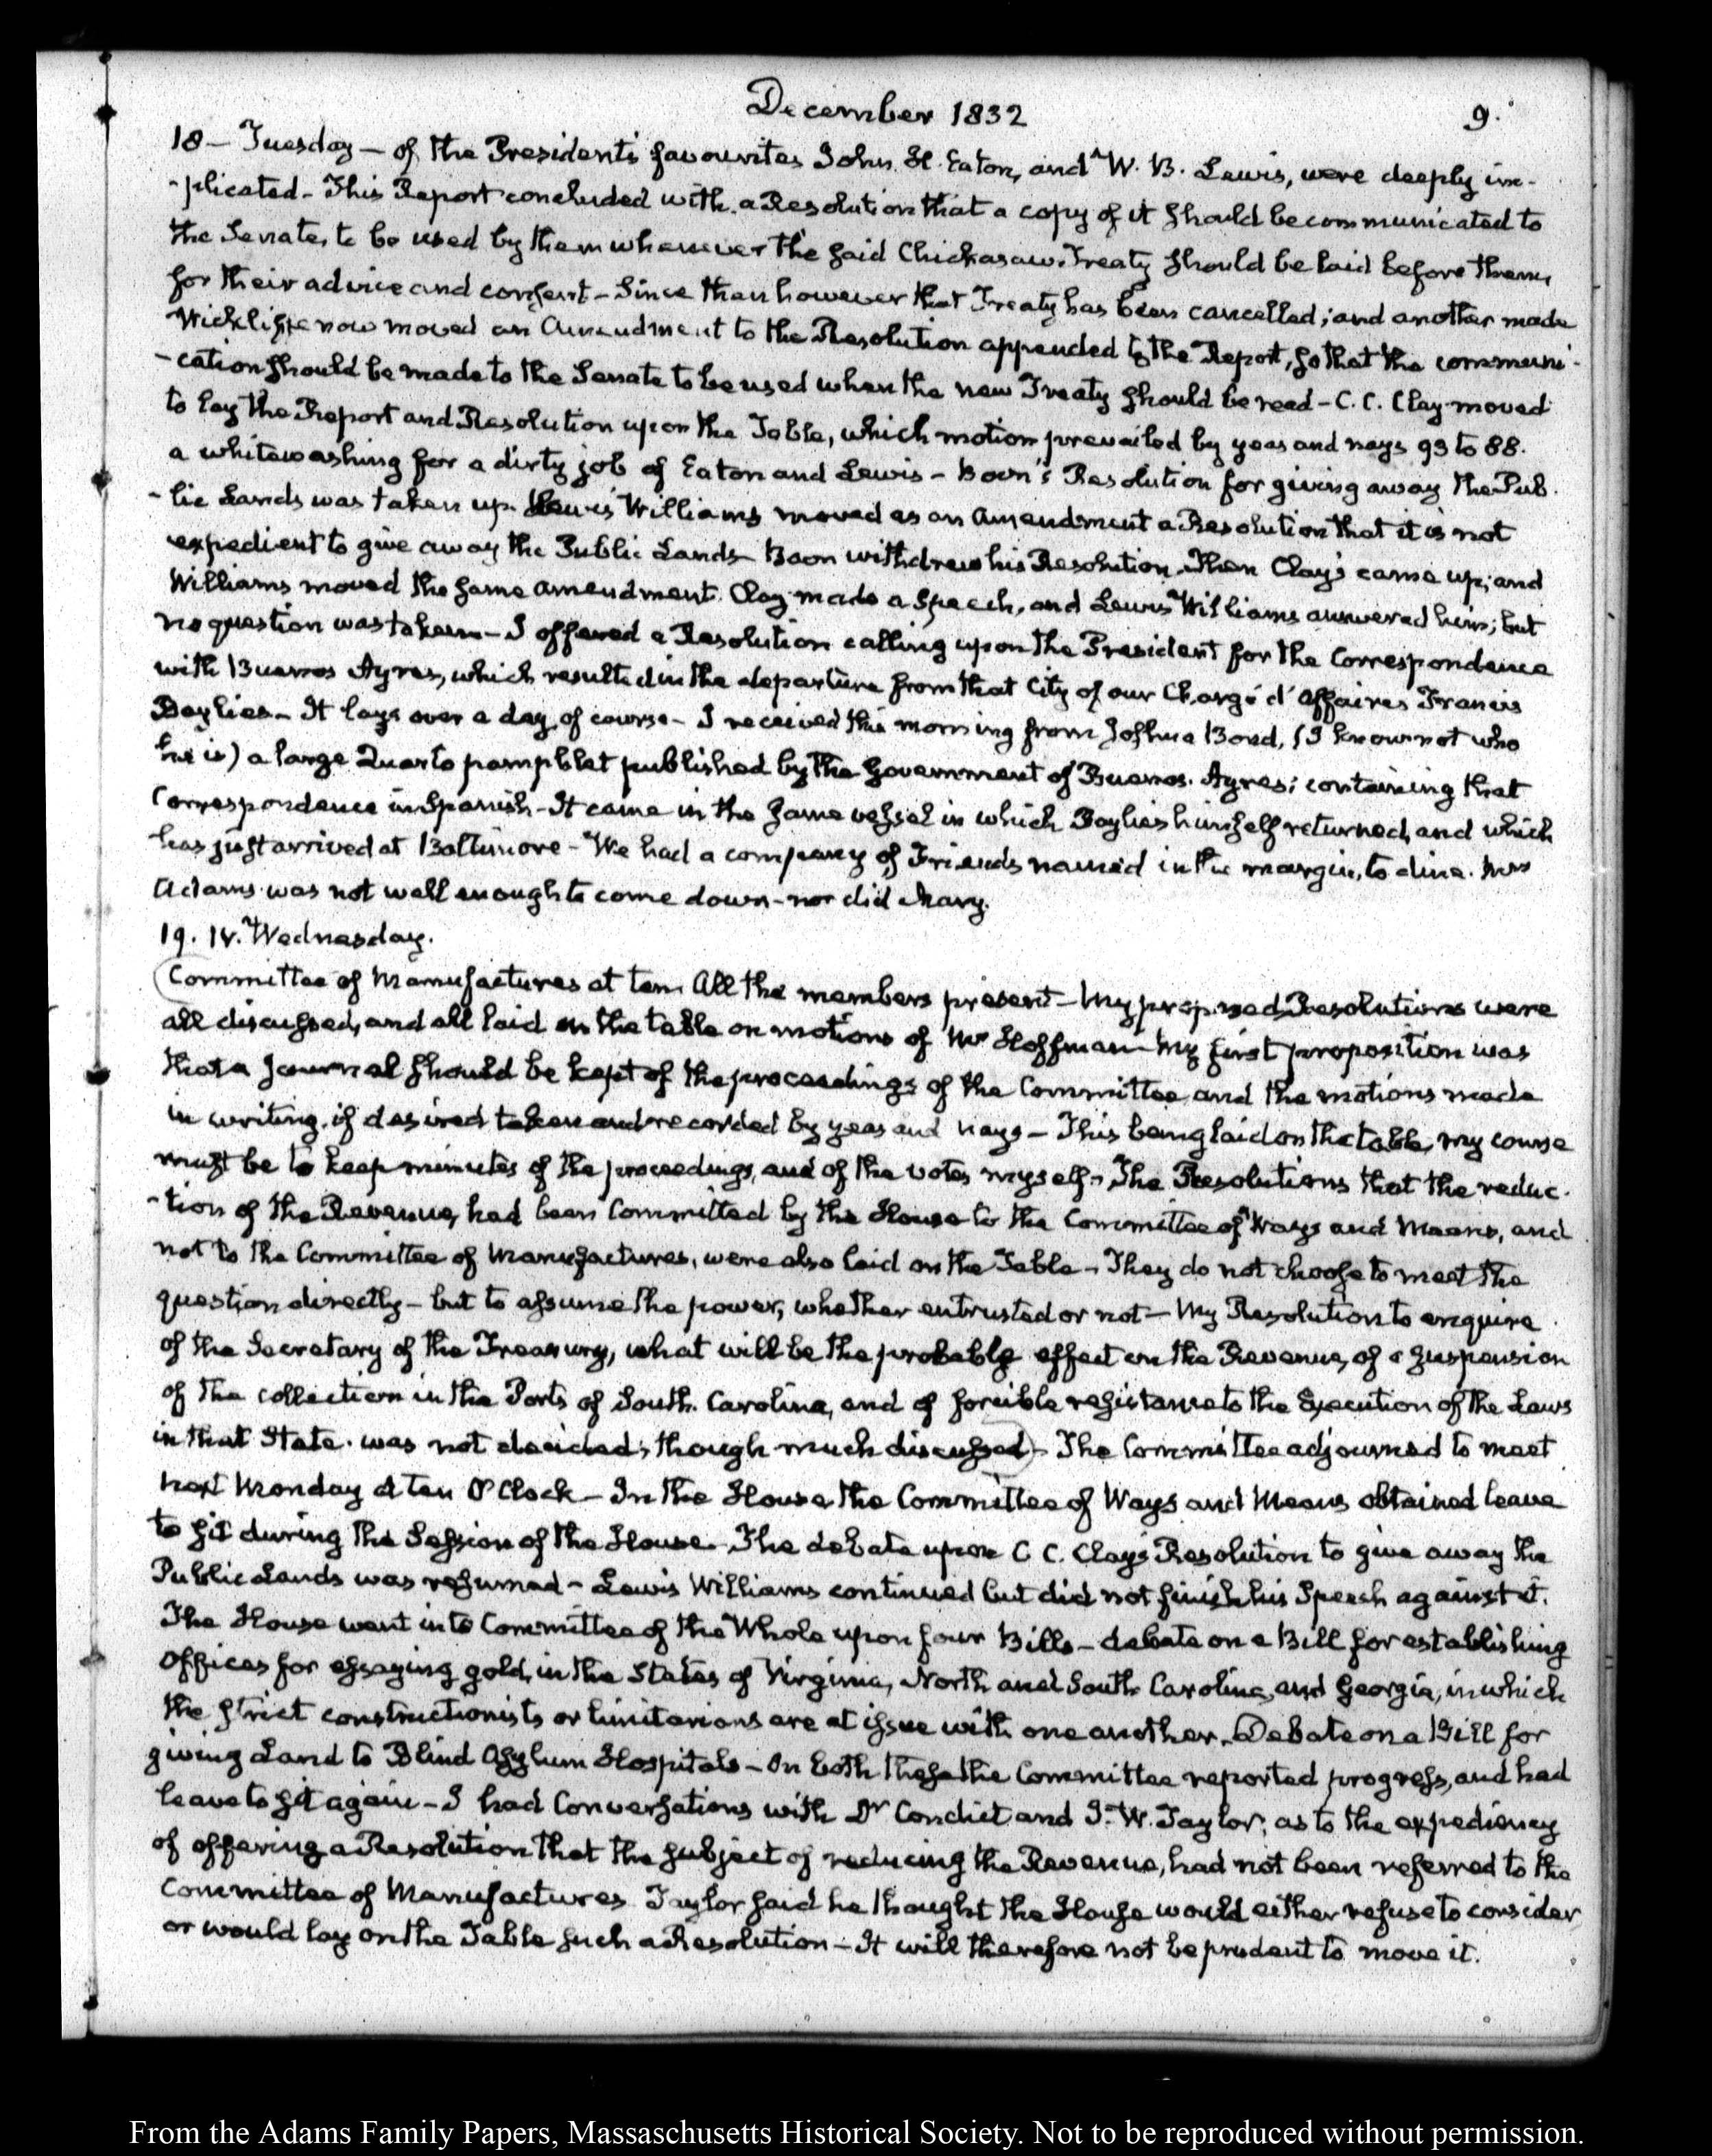 December 1832
9.
18 — Tuesday — of the President's favourites John H. Eaton, and W. B. Lewis, were deeply im-
-plicated - This Report concluded with a Resolution that a copy of it should be communicated to
the Senate, to be used by them whenever the said Chickasaw Treaty should be laid before them,
for their advice and consent - Since then however that Treaty has been cancelled; and another made
Wickliffe now moved an Amendment to the Resolution appended to the Report, so that the communi-
-cation should be made to the Senate to be used when the new Treaty should be read - C. C. Clay moved
to lay the Report and Resolution upon the Table, which motion prevailed by yeas and nays 93 to 88.
a whitewashing for a dirty job of Eaton and Lewis - Boon's Resolution for giving away the Pub-
-lic Lands was taken up. Lewis Williams moved as an Amendment a Resolution that it is not
expedient to give away the Public Lands - Boon withdrew his Resolution. Then Clay's came up; and
Williams moved the same amendment. Clay made a Speech, and Lewis Williams answered him; but
no question was taken - I offered a Resolution calling upon the President for the Correspondence
with Buenos Ayres, which resulted in the departure from that City of our Chargé d'Affaires Francis
Baylies - It lays over a day of course - I received this morning from Joshua Bond, (I know not who
he is) a large Quarto pamphlet published by the Government of Buenos Ayres; containing that
Correspondence in Spanish - It came in the same vessel in which Baylies himself returned, and which
has just arrived at Baltimore - We had a company of Friends named in the margin, to dine. Mrs
Adams was not well enough to come down - nor did Mary.
19. IV. Wednesday.
Committee of Manufactures at ten. All the members present - My proposed Resolutions were
all discussed, and all laid on the table on motions of Mr Hoffman - My first proposition was
that a Journal should be kept of the proceedings of the Committee, and the motions made
in writing, if desired taken and recorded by yeas and nays - This being laid on the table, my course
must be to keep minutes of the proceedings, and of the votes myself - The Resolutions that the reduc-
-tion of the Revenue, had been Committed by the House to the Committee of Ways and Means, and
not to the Committee of Manufactures, were also laid on the Table - They do not choose to meet the
question directly - but to assume the power, whether entrusted or not - My Resolution to enquire
of the Secretary of the Treasury, what will be the probable effect on the Revenue, of a suspension
of the collection in the Ports of South Carolina, and of forcible resistance to the Execution of the Laws
in that State, was not decided, though much discussed) - The Committee adjourned to meet
next Monday at ten O'Clock - In the House the Committee of Ways and Means obtained leave
to sit during the Session of the House. The debate upon C. C. Clay's Resolution to give away the
Public Lands was resumed - Lewis Williams continued but did not finish his Speech against it.
The House went into Committee of the Whole upon four Bills - debate on a Bill for establishing
Offices for essaying gold, in the States of Virginia, North and South Carolina, and Georgia, in which
the strict constructionists or limitarians are at issue with one another. Debate on a Bill for
giving Land to Blind Asylum Hospitals - On both these the Committee reported progress, and had
leave to sit again - I had Conversations with Dr Condict and J. W. Taylor, as to the expediency
of offering a Resolution that the subject of reducing the Revenue, had not been referred to the
Committee of Manufactures. Taylor said he thought the House would either refuse to consider
or would lay on the Table such a Resolution - It will therefore not be prudent to move it.
From the Adams Family Papers, Massachusetts Historical Society. Not to be reproduced without permission.